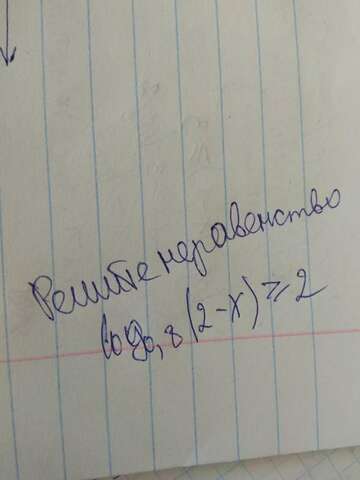 Решите неравенство
log₀,₈(2-x)≥2